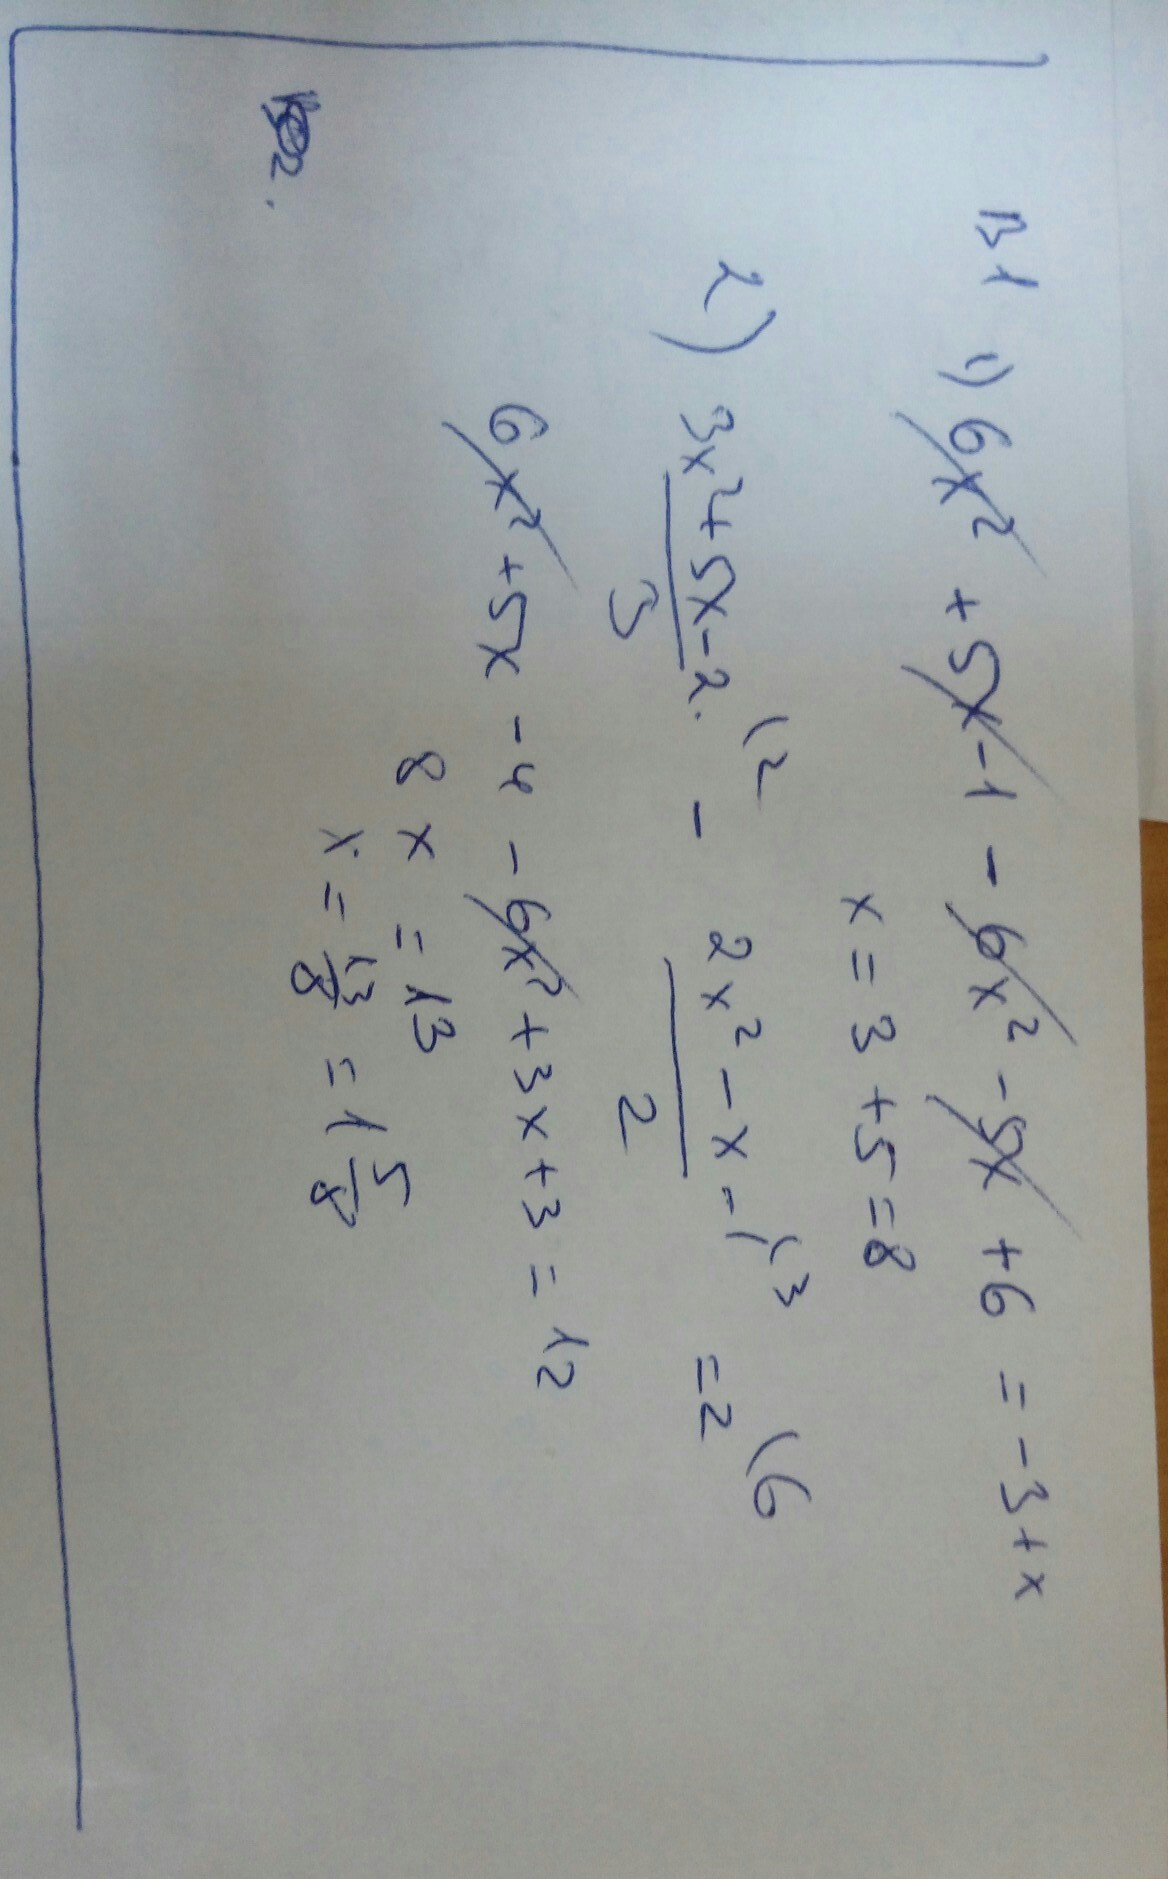 В1 1) 6x² + 5x - 1 - 6x² - 5x + 6 = -3 + x
x = 3 + 5 = 8
2) 3x² + 5x - 2 (2 - 2x² - x - 1 (3 = 2 (6
3 2
6x² + 5x - 4 - 6x² + 3x + 3 = 12
8x = 13
x = 13/8 = 1 5/8
2.